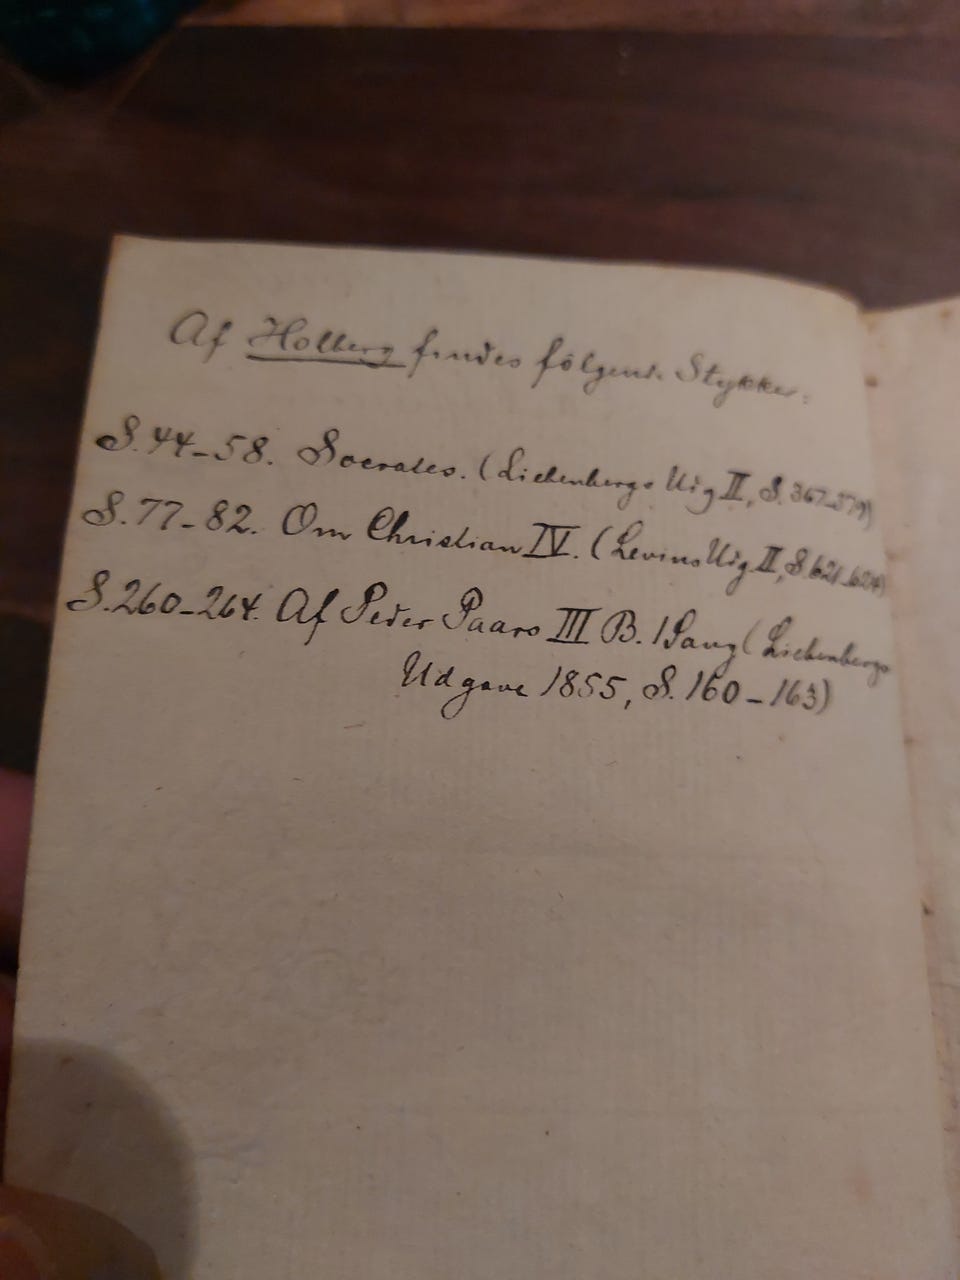 Af Holberg findes følgende Stykker:
S. 44-58. Socrates. (Liebenbergs Udg II, S. 367-379)
S. 77-82. Om Christian IV. (Levins Udg II, S. 621-624)
S. 260-264. Af Peder Paars III B. 1 Sang (Liebenbergs
Udgave 1855, S. 160-163)